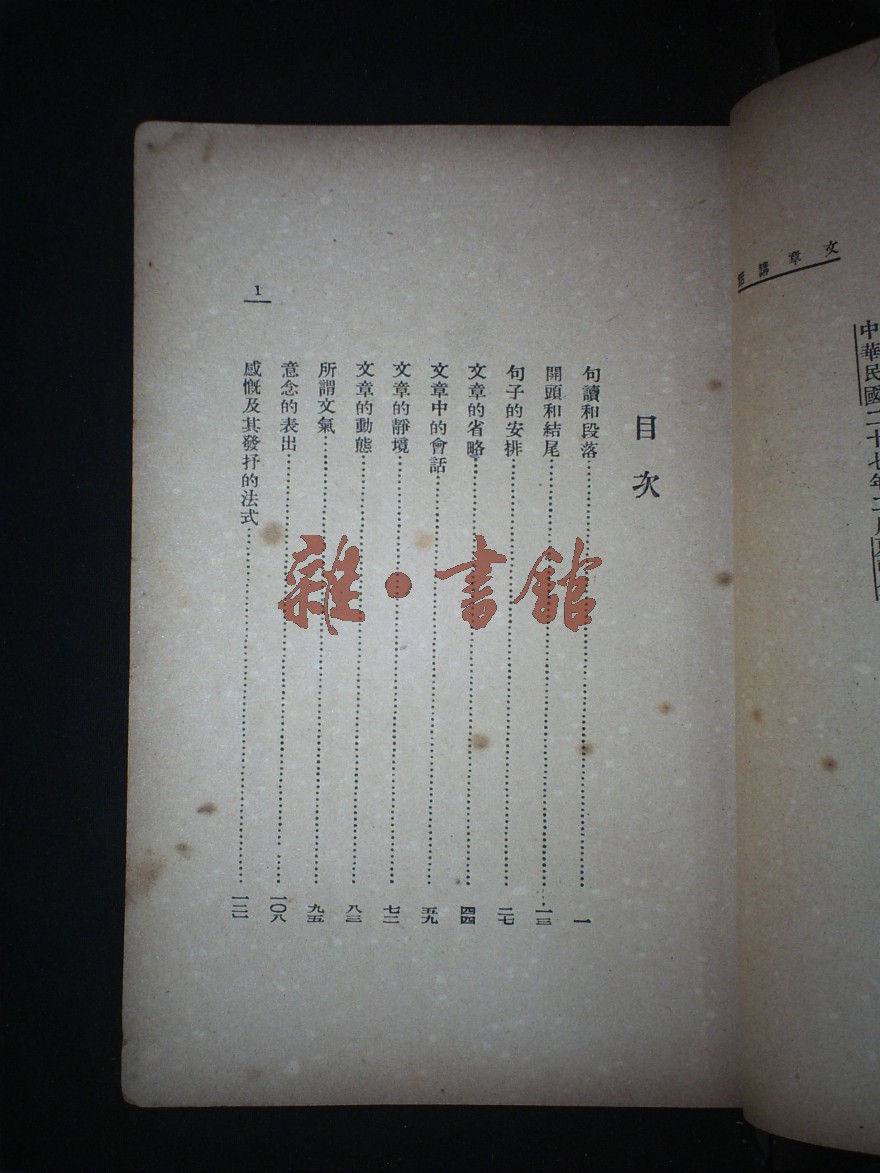 文章講
中華民國二十七年二月
目次
句讀和段落……一
開頭和結尾……一三
句子的安排……二七
文章的省略……四四
文章中的會話……五九
文章的靜境……七二
文章的動態……八三
所謂文氣……九五
意念的表出……一〇八
感慨及其發抒的法式……一二一
1
雜·書館